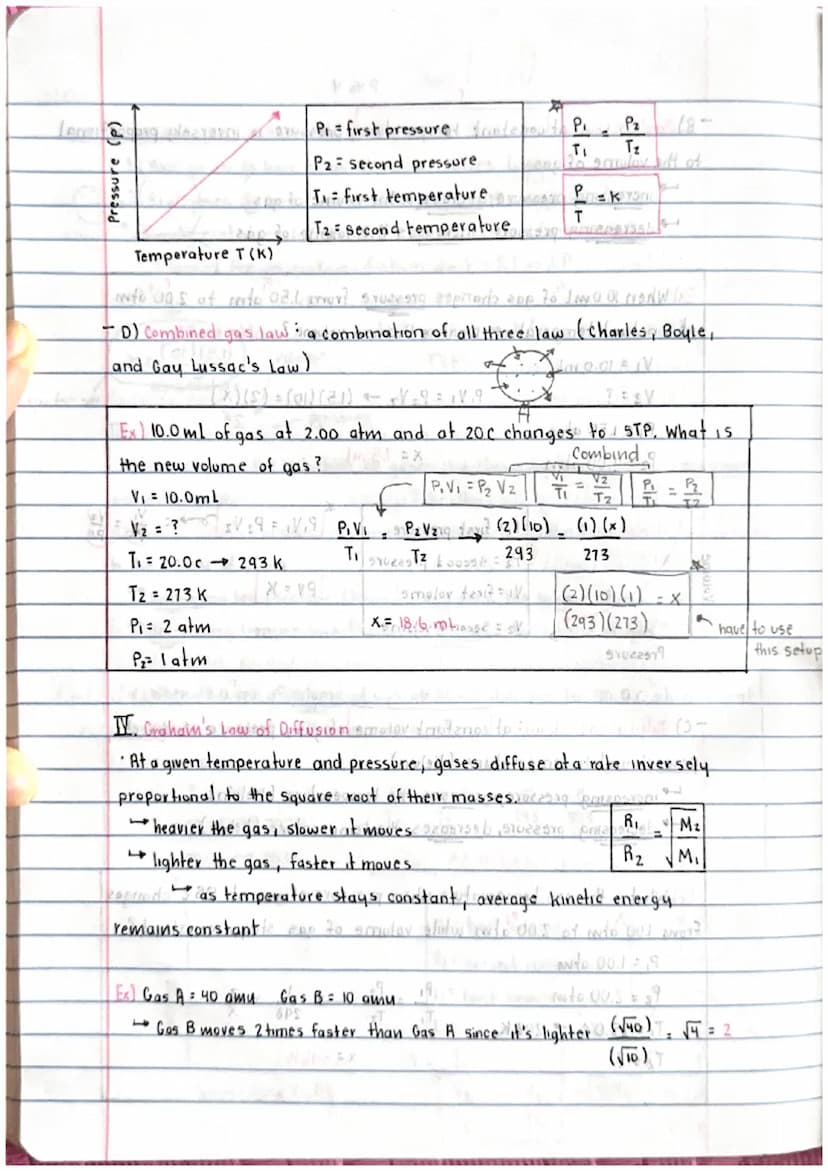 Pressure (P)
Temperature T (K)
P₁ = first pressure
P₂ = second pressure
T₁ = first temperature
T₂ = second temperature
P₁/T₁ = P₂/T₂
P/T = K
- D) Combined gas law : a combination of all three law (Charles, Boyle,
and Gay Lussac's Law)
Ex) 10.0 ml of gas at 2.00 atm and at 20C changes to STP. What is
the new volume of gas?
Combind
P₁V₁ = P₂V₂ V₁/T₁ = V₂/T₂ P₁/T₁ = P₂/T₂
V₁ = 10.0mL
V₂ = ?
P₁V₁/T₁ = P₂V₂/T₂ → (2)(10)/293 = (1)(x)/273
T₁ = 20.0c → 293 k
T₂ = 273 K
(2)(10)(1)/(293)(273) = x
P₁ = 2 atm
x = 18.6 mL
have to use
this setup
P₂ = 1 atm
IV. Graham's Law of Diffusion
· At a given temperature and pressure, gases diffuse at a rate inversely
proportional to the square root of their masses.
↳ heavier the gas, slower it moves
R₁/R₂ = √M₂/M₁
↳ lighter the gas, faster it moves
↳ as temperature stays constant, average kinetic energy
remains constant
Ex) Gas A = 40 amu Gas B = 10 amu
↳ Gas B moves 2 times faster than Gas A since it's lighter (√40)/(√10) = √4 = 2